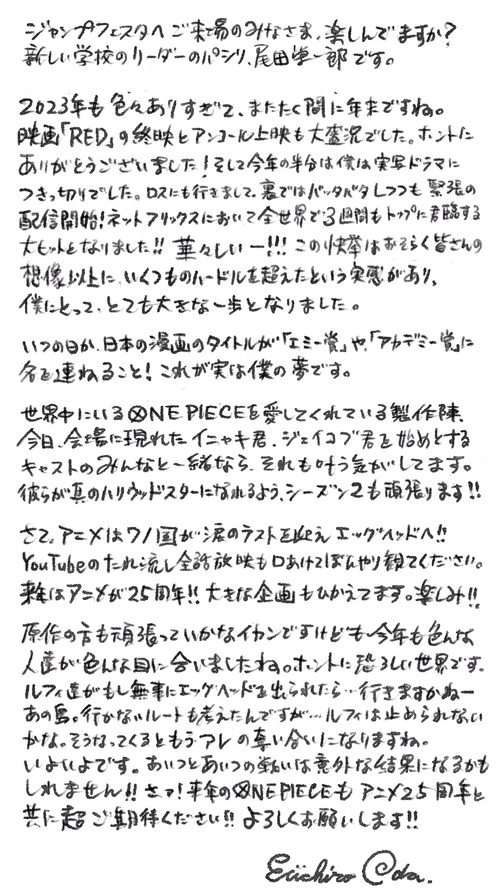 ジャンプフェスタへご来場のみなさま、楽しんでますか？
新しい学校のリーダーのパシリ、尾田栄一郎です。
2023年も色々ありすぎて、またたく間に年末ですね。
映画「RED」の終映とアンコール上映も大盛況でした。ホントに
ありがとうございました！そして今年の半分は僕は実写ドラマに
つきっ切りでした。ロスにも行きまして、裏ではバッタバタしつつも緊張の
配信開始！ネットフリックスにおいて全世界で3週間もトップに君臨する
大ヒットとなりました!! 華々しいー!!! この快挙はおそらく皆さんの
想像以上に、いくつものハードルを超えたという実感があり、
僕にとって、とても大きな一歩となりました。
いつの日か、日本の漫画のタイトルが「エミー賞」や、「アカデミー賞」に
名を連ねること！これが実は僕の夢です。
世界中にいるONE PIECEを愛してくれている製作陣、
今日、会場に現れたイニャキ君、ジェイコブ君を始めとする
キャストのみんなと一緒なら、それも叶う気がしてます。
彼らが真のハリウッドスターになれるよう、シーズン2も頑張ります!!
さて、アニメはワノ国が涙のラストを迎えエッグヘッドへ!!
YouTubeのたれ流し全話放映も口あけてぼんやり観てください。
来年はアニメが25周年!! 大きな企画もひかえてます。楽しみ!!
原作の方も頑張っていかなイカンですけども今年も色んな
人達が色んな目に合いましたね。ホントに恐ろしい世界です。
ルフィ達がもし無事にエッグヘッドを出られたら…行きますかねー
あの島。行かないルートも考えたんですが…ルフィは止められない
かな。そうなってくるともうアレの奪い合いになりますね。
いよいよです。あいつとあいつの戦いは意外な結果になるかも
しれません!! さァ！来年のONE PIECEもアニメ25周年と
共に超ご期待ください!! よろしくお願いします!!
Eiichiro Oda.